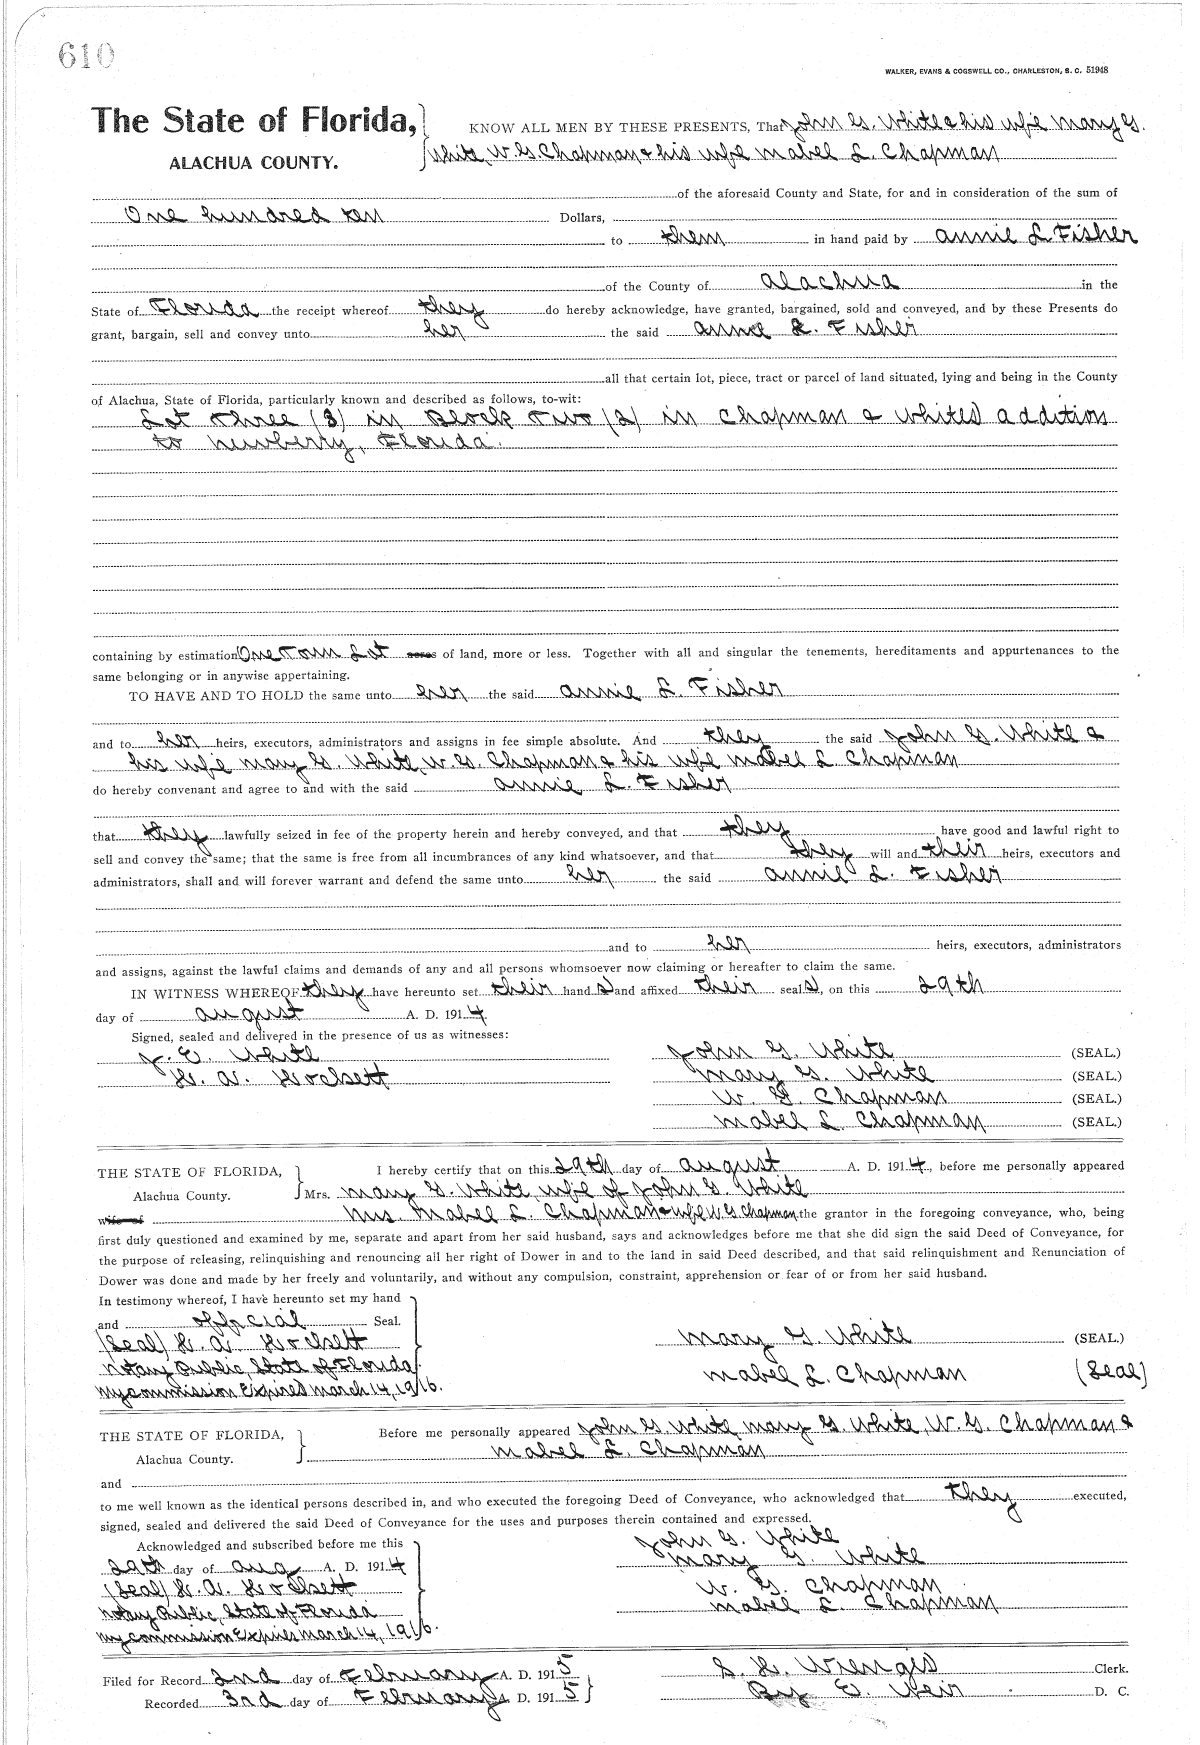 610
WALKER, EVANS & COGSWELL CO., CHARLESTON, S. C. 51948
The State of Florida, KNOW ALL MEN BY THESE PRESENTS, That John G. White & his wife Mary G.
ALACHUA COUNTY. White, W. G. Chapman & his wife Mabel L. Chapman
of the aforesaid County and State, for and in consideration of the sum of
One hundred ten Dollars,
to them in hand paid by Annie L. Fisher
of the County of Alachua in the
State of Florida the receipt whereof they do hereby acknowledge, have granted, bargained, sold and conveyed, and by these Presents do
grant, bargain, sell and convey unto her the said Annie L. Fisher
all that certain lot, piece, tract or parcel of land situated, lying and being in the County
of Alachua, State of Florida, particularly known and described as follows, to-wit:
Lot Three (3) in Block Two (2) in Chapman & Whites addition
to Newberry, Florida.
containing by estimation One Town Lot acres of land, more or less. Together with all and singular the tenements, hereditaments and appurtenances to the
same belonging or in anywise appertaining.
TO HAVE AND TO HOLD the same unto her the said Annie L. Fisher
and to her heirs, executors, administrators and assigns in fee simple absolute. And they the said John G. White &
his wife Mary G. White, W. G. Chapman & his wife Mabel L. Chapman
do hereby convenant and agree to and with the said Annie L. Fisher
that they lawfully seized in fee of the property herein and hereby conveyed, and that they have good and lawful right to
sell and convey the same; that the same is free from all incumbrances of any kind whatsoever, and that they will and their heirs, executors and
administrators, shall and will forever warrant and defend the same unto her the said Annie L. Fisher
and to her heirs, executors, administrators
and assigns, against the lawful claims and demands of any and all persons whomsoever now claiming or hereafter to claim the same.
IN WITNESS WHEREOF they have hereunto set their hand s and affixed their seal s, on this 29th
day of August A. D. 1914
Signed, sealed and delivered in the presence of us as witnesses:
J. E. White John G. White (SEAL.)
H. A. Mary G. White (SEAL.)
W. G. Chapman (SEAL.)
Mabel L. Chapman (SEAL.)
THE STATE OF FLORIDA, I hereby certify that on this 29th day of August A. D. 1914, before me personally appeared
Alachua County. Mrs. Mary G. White wife of John G. White
wife of Mrs. Mabel L. Chapman & wife W. G. Chapman the grantor in the foregoing conveyance, who, being
first duly questioned and examined by me, separate and apart from her said husband, says and acknowledges before me that she did sign the said Deed of Conveyance, for
the purpose of releasing, relinquishing and renouncing all her right of Dower in and to the land in said Deed described, and that said relinquishment and Renunciation of
Dower was done and made by her freely and voluntarily, and without any compulsion, constraint, apprehension or fear of or from her said husband.
In testimony whereof, I have hereunto set my hand
and official Seal.
(Seal) H. A. Mary G. White (SEAL.)
Notary Public, State of Florida
My commission Expires March 14, 1916. Mabel L. Chapman (Seal)
THE STATE OF FLORIDA, Before me personally appeared John G. White Mary G. White, W. G. Chapman &
Alachua County. Mabel L. Chapman
and
to me well known as the identical persons described in, and who executed the foregoing Deed of Conveyance, who acknowledged that they executed,
signed, sealed and delivered the said Deed of Conveyance for the uses and purposes therein contained and expressed.
Acknowledged and subscribed before me this John G. White
29th day of Aug A. D. 1914 Mary G. White
(Seal) H. A. W. G. Chapman
Notary Public, State of Florida Mabel L. Chapman
My commission Expires March 14, 1916.
Filed for Record 2nd day of February A. D. 1915 S. H. Wienges Clerk.
Recorded 3rd day of February A. D. 1915 By E. Weir D. C.